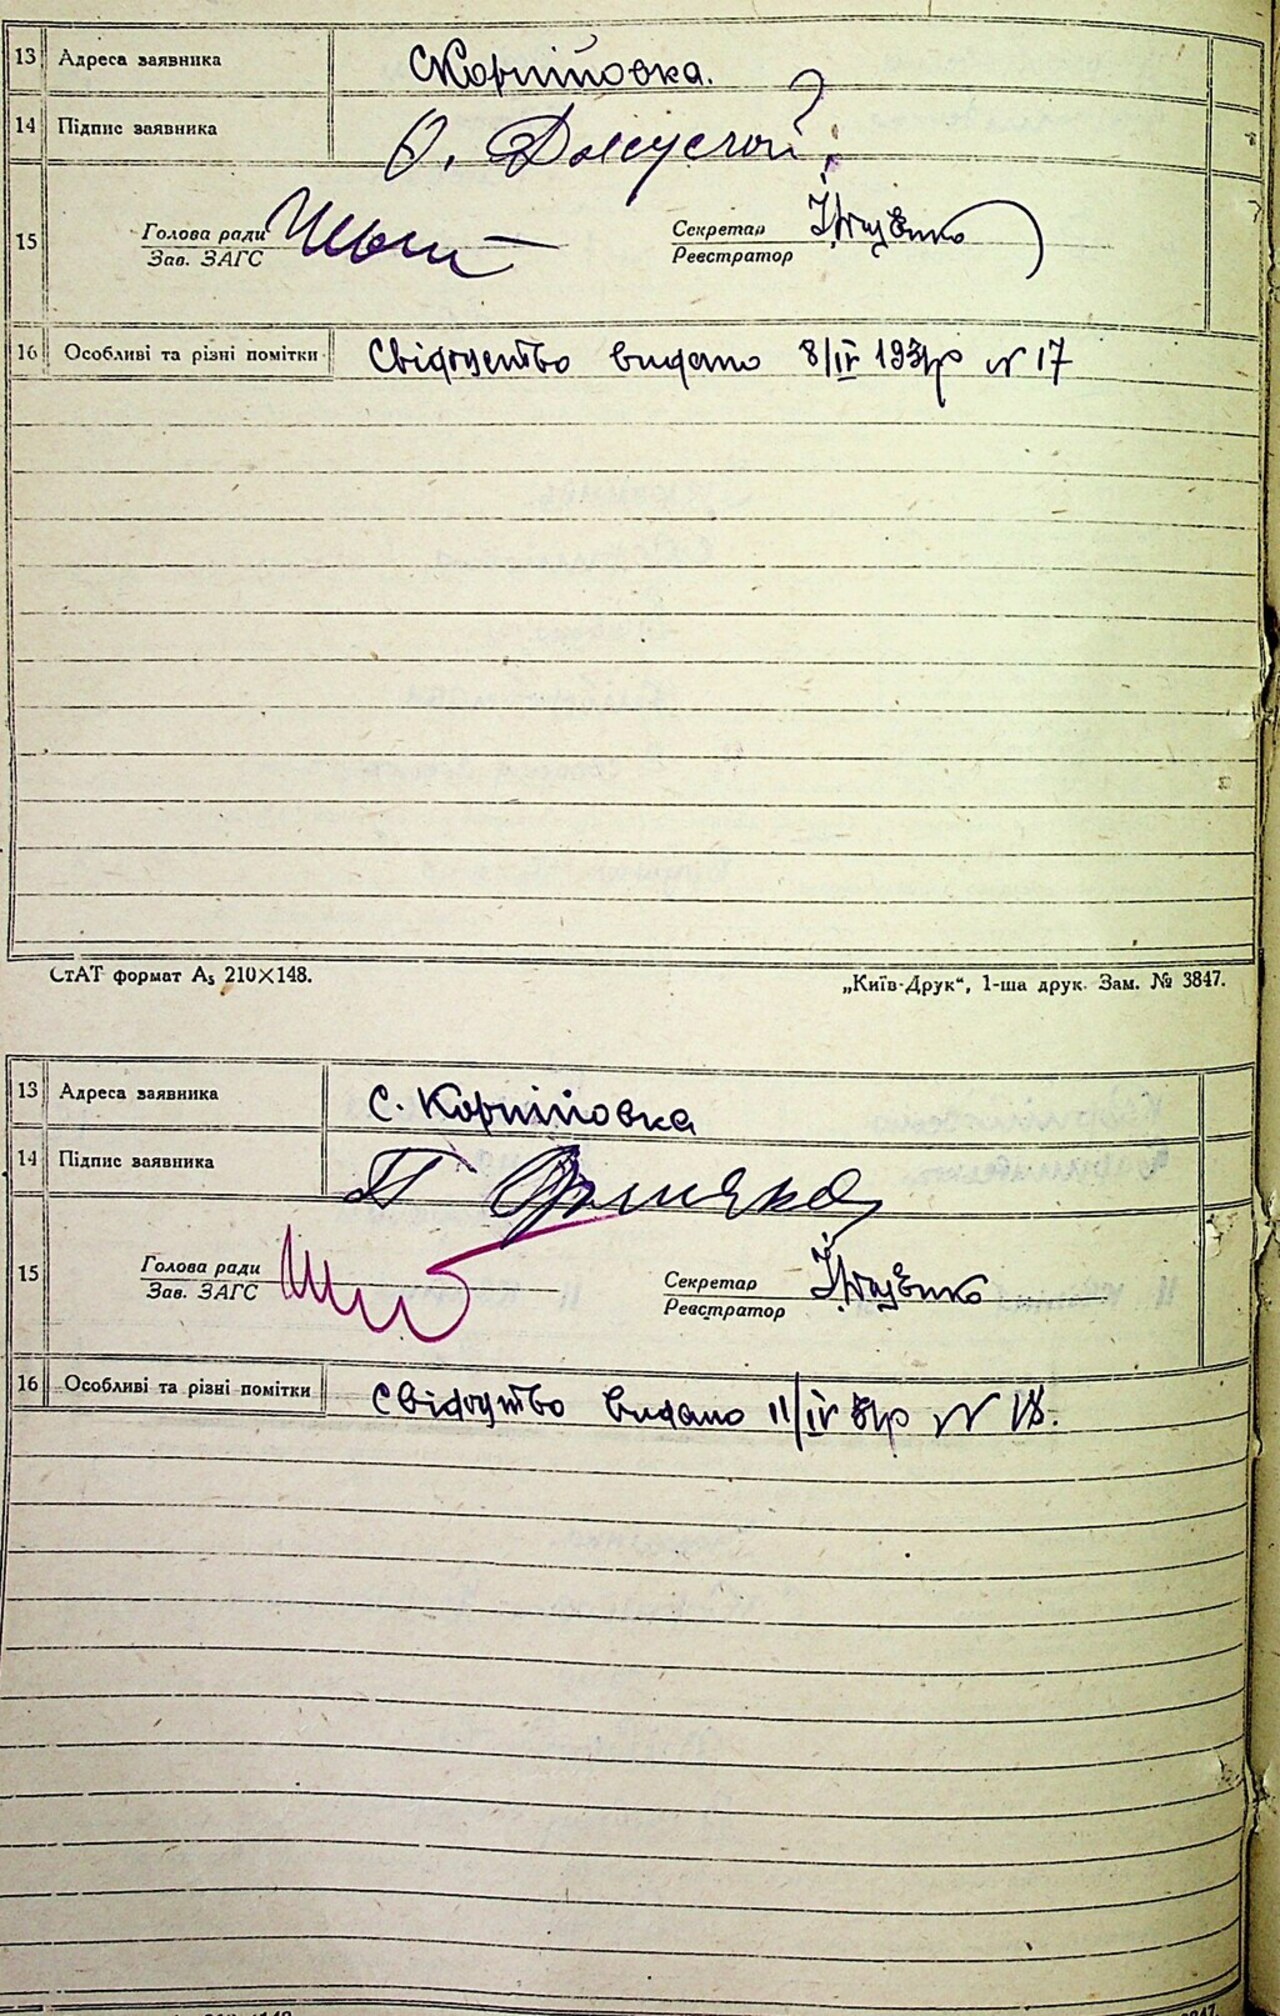 13 Адреса заявника С Корніївовка.
14 Підпис заявника О.
15 Голова ради Секретар
Зав. ЗАГС Реєстратор
16 Особливі та різні помітки Свідоцтво видано 8/IV р № 17
СтАТ формат А5 210×148. „Київ-Друк“, 1-ша друк. Зам. № 3847.
13 Адреса заявника С. Корніївовка
14 Підпис заявника П
15 Голова ради Секретар
Зав. ЗАГС Реєстратор
16 Особливі та різні помітки Свідоцтво видано 11/IV р № 18.
3847.